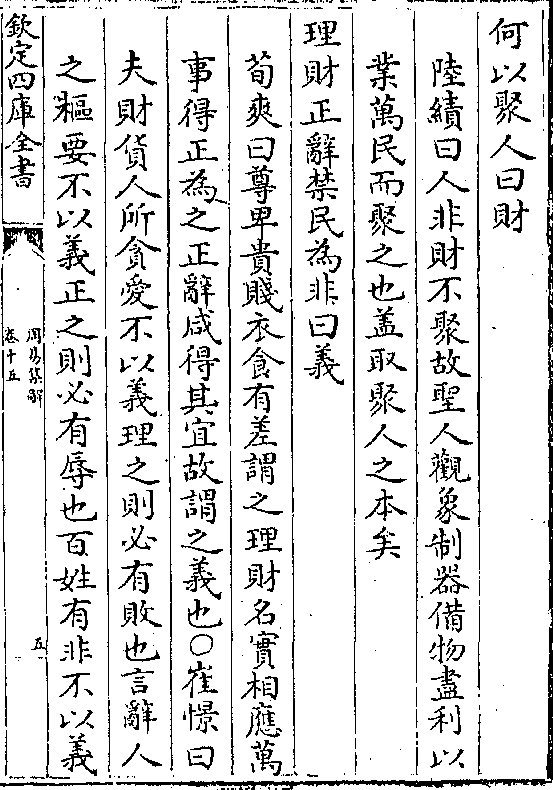 何以聚人曰財
陸績曰人非財不聚故聖人觀象制器備物盡利以
業萬民而聚之也盖取聚人之本矣
理財正辭禁民為非曰義
荀爽曰尊卑貴賤衣食有差謂之理財名實相應萬
事得正為之正辭咸得其宜故謂之義也○崔憬曰
夫財貨人所貪愛不以義理之則必有敗也言辭人
之樞要不以義正之則必有辱也百姓有非不以義
欽定四庫全書
周易集解
卷十五
五